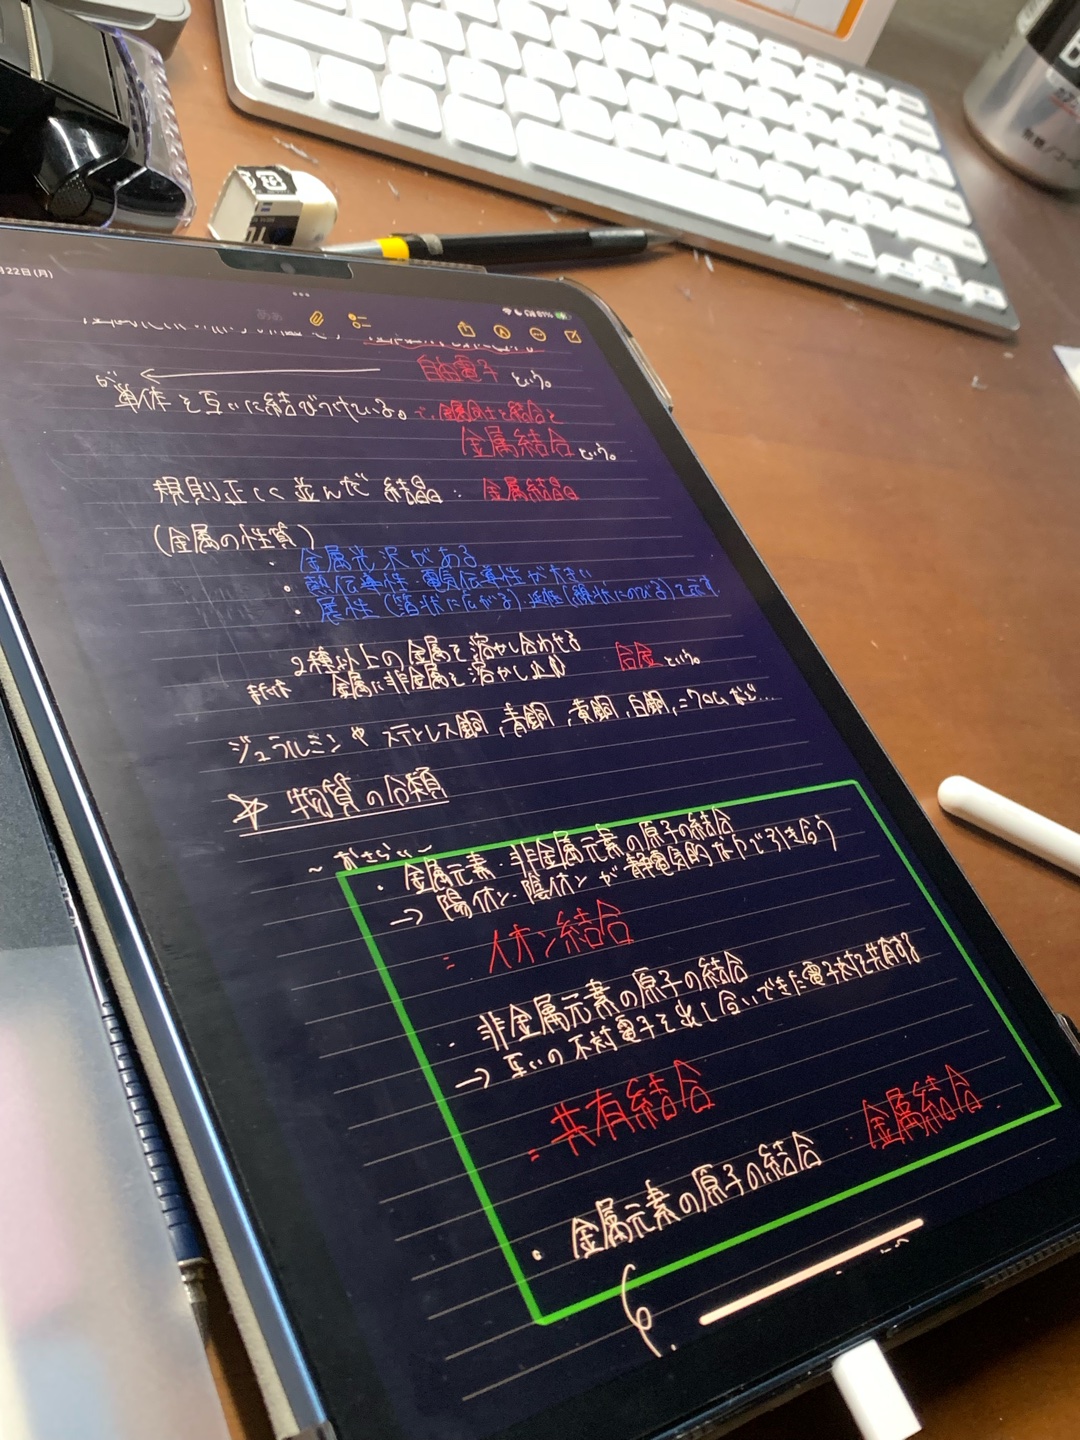 22日(月)
81%
自由電子 という。
が
単体と互いに結びつけている。で、金属同士を結合を
金属結合 という。
規則正しく並んだ結晶: 金属結晶
(金属の性質)
・金属光沢がある
・熱伝導性・電気伝導性が大きい
・展性(箔状に広がる)延性(線状にのびる)を示す
2種以上の金属を溶かし合わせる
金属に非金属を溶かし 合金 という。
ジュラルミンや ステンレス鋼, 青銅, 黄銅, 白銅, ニクロムなど...
☆ 物質の分類
~おさらい~
・金属元素・非金属元素の原子の結合
→ 陽イオン・陰イオンが静電気的な力で引き合う
= イオン結合
・非金属元素の原子の結合
→ 互いの不対電子を出し合いできた電子対を共有する
= 共有結合
・金属元素の原子の結合: 金属結合